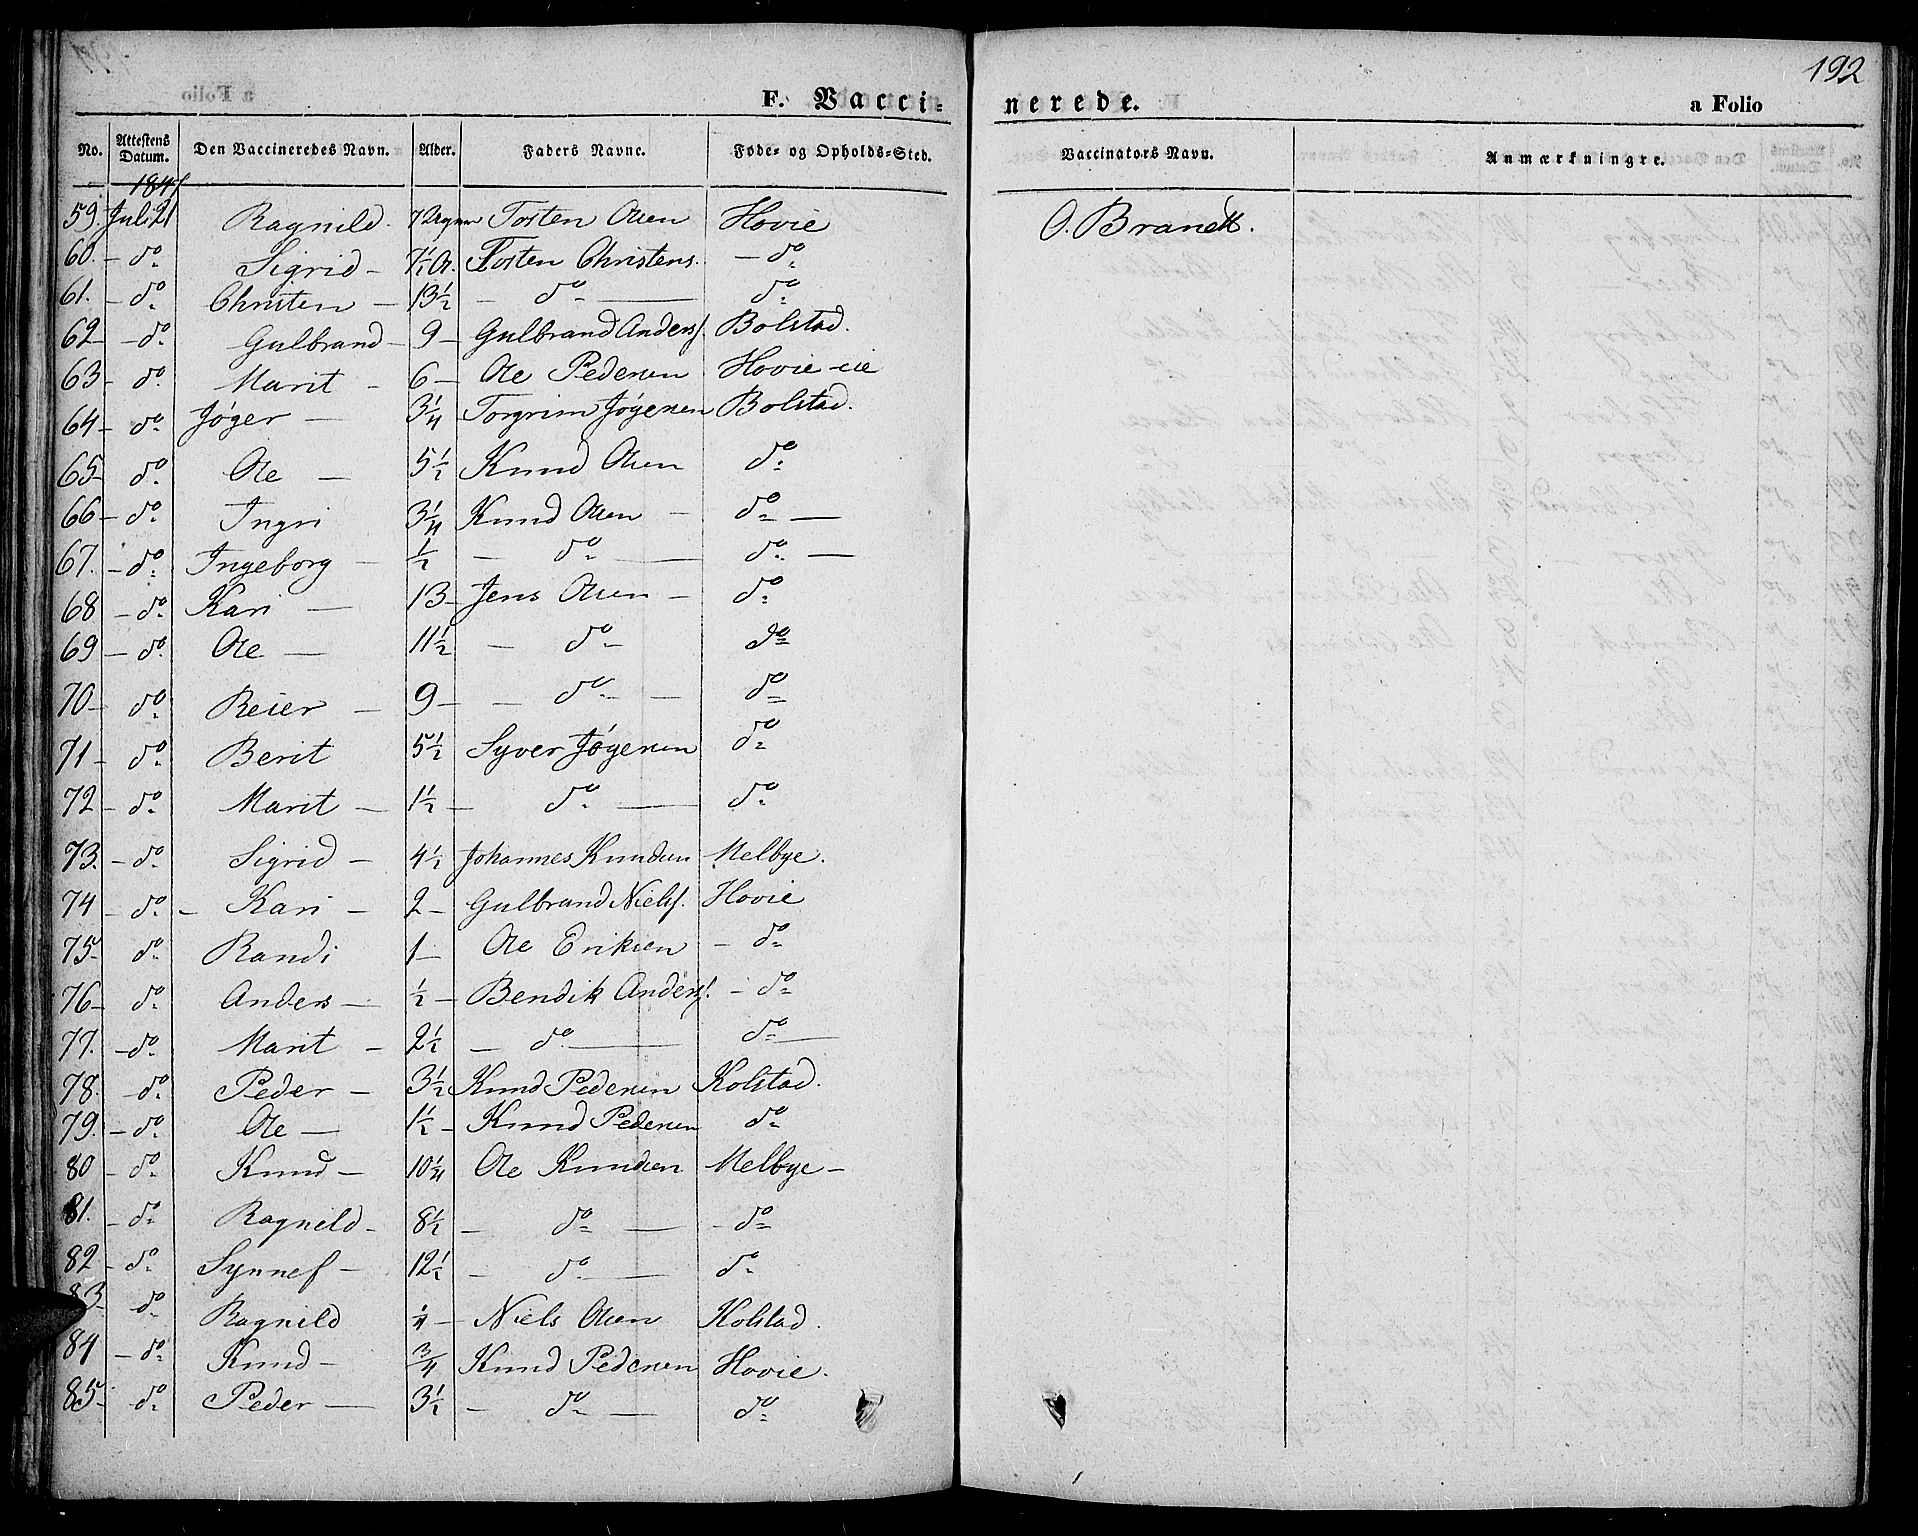 192
F. Vacci-
nerede.
a Folio
No. Attestens Datum. Den Vaccineredes Navn. Alder. Faders Navne. Føde- og Opholds-Sted. Vaccinators Navn. Anmærkningre.
1847
59. Juli 21 Ragnild. 7 Torsten Olsen Hovie O. Brandt.
60. - do Sigrid - 7½ A. Torsten Christens. - do
61. - do Christen - 13½ - do - do
62 - do Gulbrand - 9 - Gulbrand Anders. Bolstad.
63 - do Marit - 6 - Ole Pedersen Hovie-eie
64 - do Jøger - 3¼ Torgrim Jøgersen Bolstad.
65 - do Ole - 5½ Knud Olsen do
66 - do Ingri 3¼ Knud Olsen - do -
67. - do Ingeborg - ½ - do - do -
68 - do Kari - 13 - Jens Olsen - do
69 - do Ole - 11½ - do - do
70 - do Reier - 9 - - do - do
71 - do Berit 5½ Syver Jøgersen do
72 - do Marit - 1½ - do - do
73. - do Sigrid - 4½ Johannes Knudsen Melbye.
74 - do - Kari - 2 - Gulbrand Niels. Hovie
75 - do Randi 1 - Ole Eriksen - do
76 - do Anders - ½ - Bendik Anders. - do
77. - do Marit - 2½ - do - do -
78. - do Peder - 3½ Knud Pedersen Kolstad.
79. - do Ole - 1½ - Knud Pedersen do
80 - do Knud - 10¼ Ole Knudsen Melbye -
81. - do Ragnild - 8½ - do - - do
82 - do Synnef - 12½ - do - do
83 - do Ragnild ¼ - Niels Olsen Kolstad.
84 - do Knud - ¾ Knud Pedersen Hovie.
85 - do Peder - 3½ - do - do